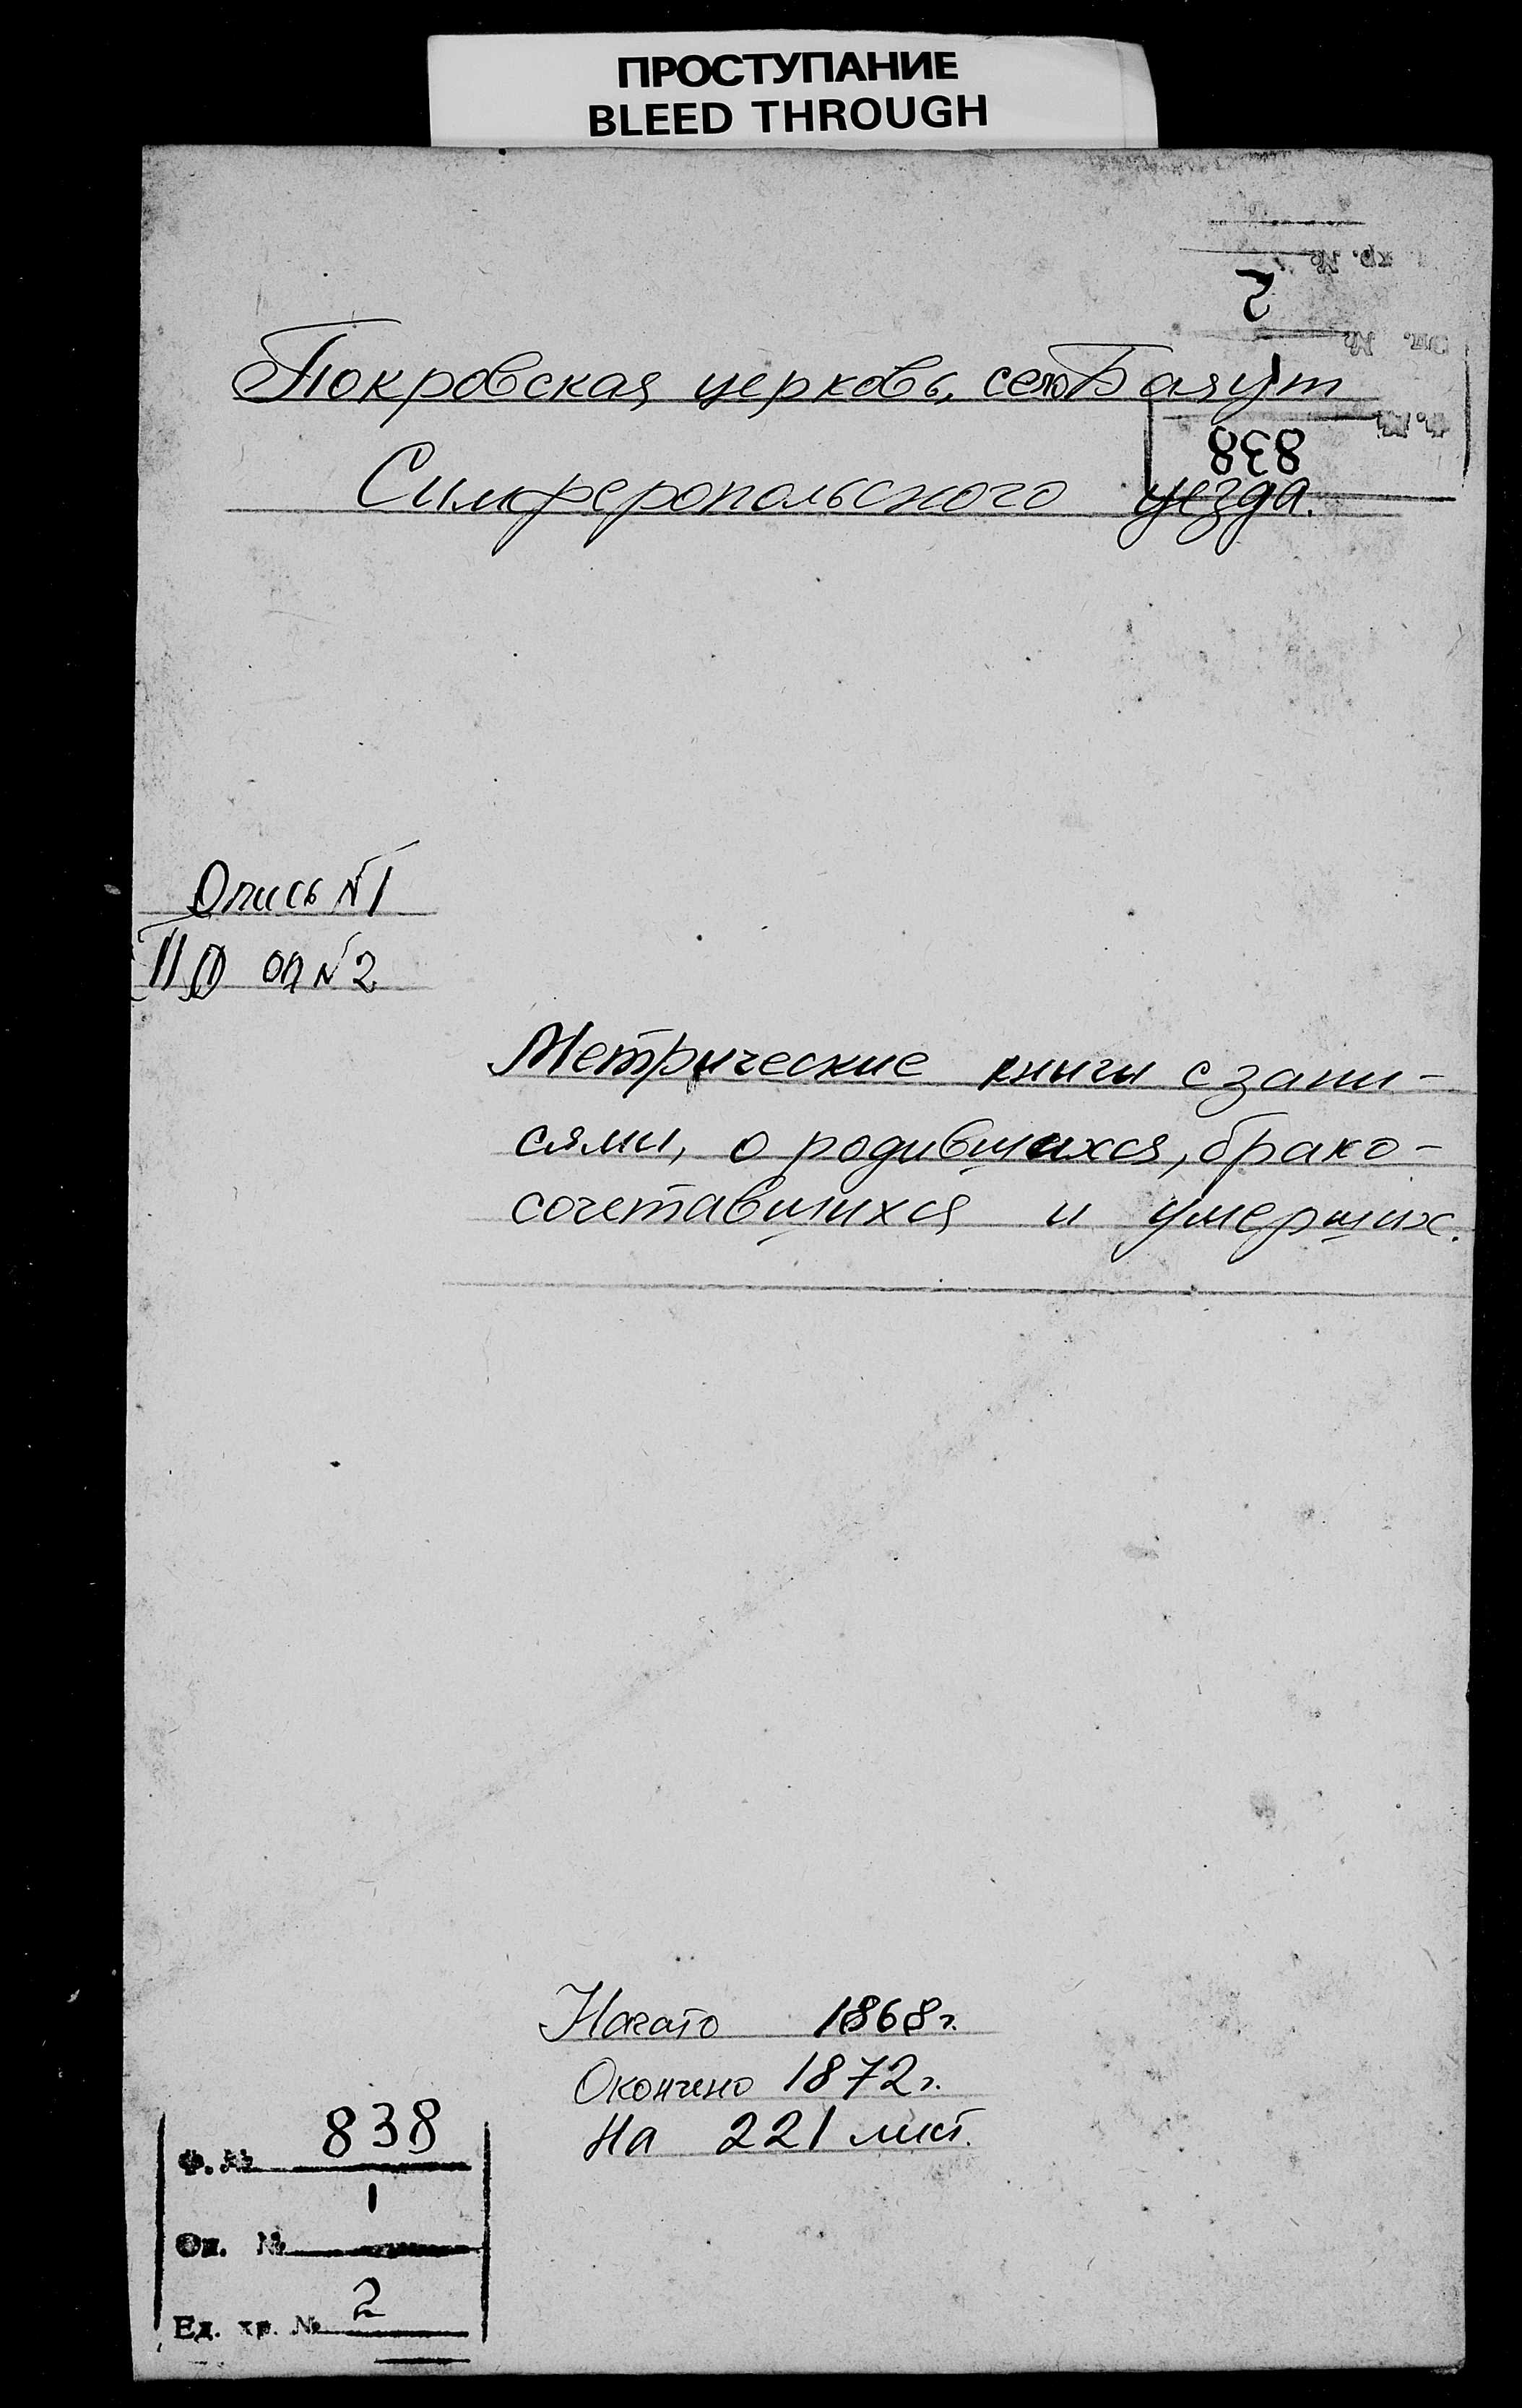 ПРОСТУПАНИЕ
BLEED THROUGH
Ед. хр. №
2
Оп. №
1
Ф. №
838
Покровская церковь, село Баяут
Симферопольского уезда.
Опись №1
оп №2
Метрические книги с запи-
сями, о родившихся, брако-
сочетавшихся и умерших.
Начато 1868г.
Окончено 1872г.
На 221 лист.
Ф. № 838
Оп. № 1
Ед. хр. № 2